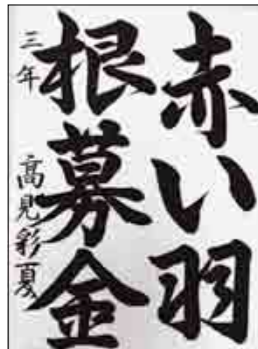 赤い羽
根募金
三年 高見彩夏